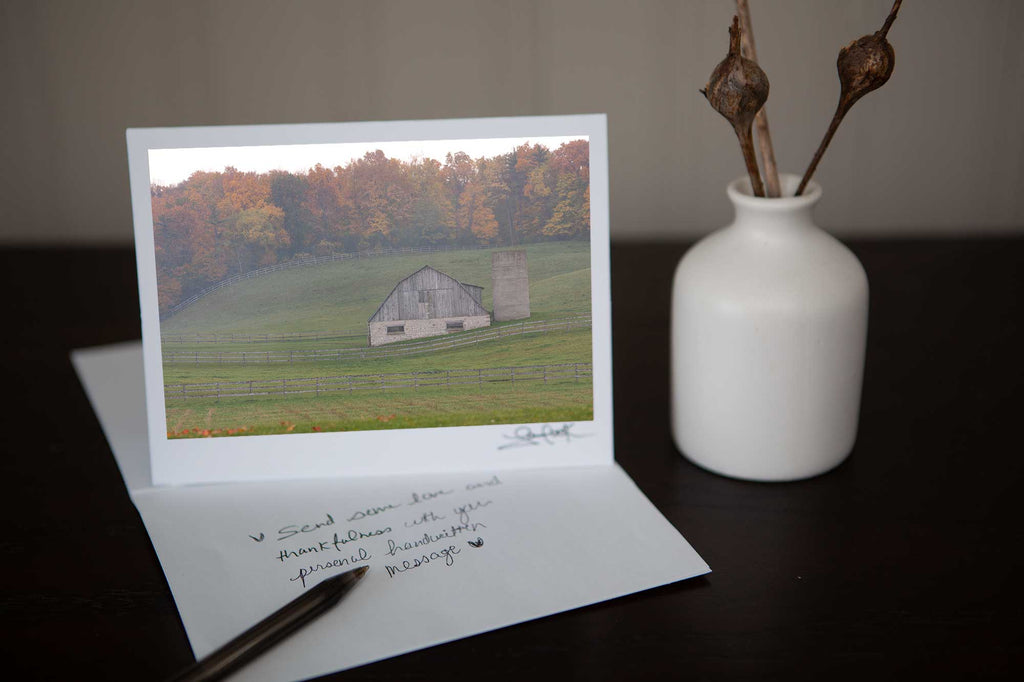 ♥ Send some love and
thankfulness with your
personal handwritten
message ♥